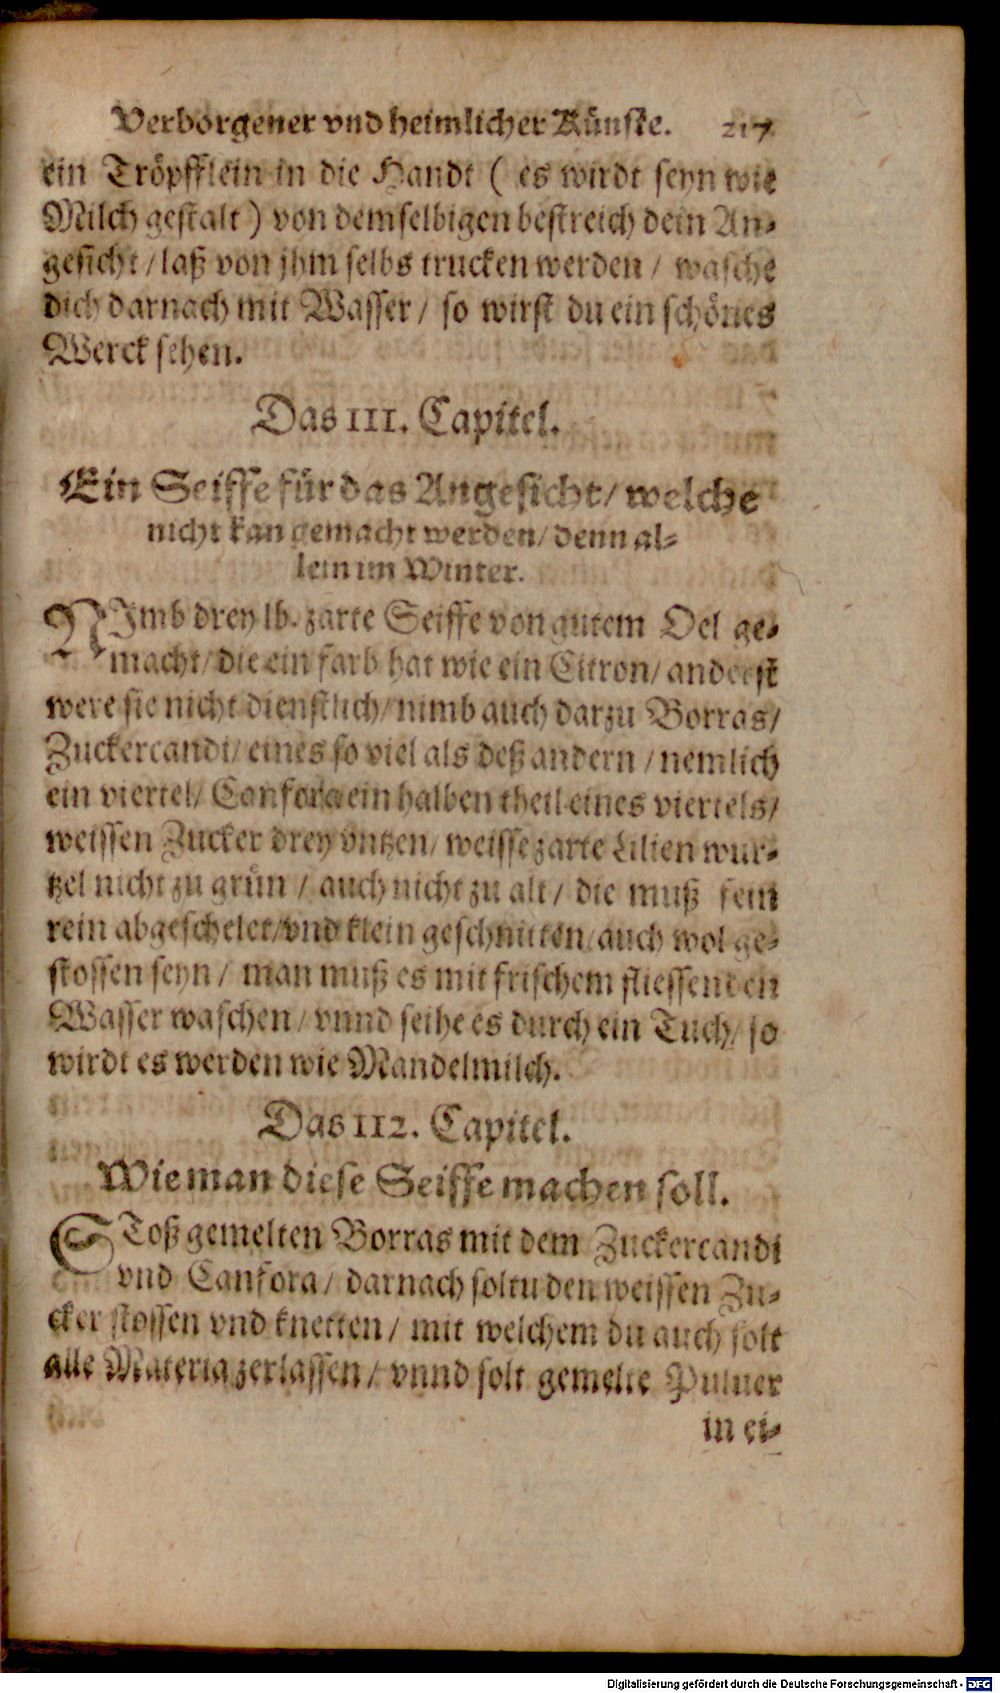 Verborgener vnd heimlicher Künste. 217
ein Tröpfflein in die Handt ( es wirdt seyn wie
Milch gestalt ) von demselbigen bestreich dein An-
gesicht / laß von jhm selbs trucken werden / wasche
dich darnach mit Wasser / so wirst du ein schönes
Werck sehen.
Das 111. Capitel.
Ein Seiffe für das Angesicht / welche
nicht kan gemacht werden / denn al-
lein im Winter.
NJmb drey lb. zarte Seiffe von gutem Oel ge-
macht / die ein farb hat wie ein Citron / anderst
were sie nicht dienstlich / nimb auch darzu Borras /
Zuckercandi / eines so viel als deß andern / nemlich
ein viertel / Canfora ein halben theil eines viertels /
weissen Zucker drey vntzen / weisse zarte Lilien wur-
tzel nicht zu grün / auch nicht zu alt / die muß fein
rein abgeschelet / vnd klein geschnitten / auch wol ge-
stossen seyn / man muß es mit frischem fliessenden
Wasser waschen / vnnd seihe es durch ein Tuch / so
wirdt es werden wie Mandelmilch.
Das 112. Capitel.
Wie man diese Seiffe machen soll.
SToß gemelten Borras mit dem Zuckercandi
vnd Canfora / darnach soltu den weissen Zu-
cker stossen vnd knetten / mit welchem du auch solt
alle Materia zerlassen / vnnd solt gemelte Puluer
in ei-
Digitalisierung gefördert durch die Deutsche Forschungsgemeinschaft - DFG